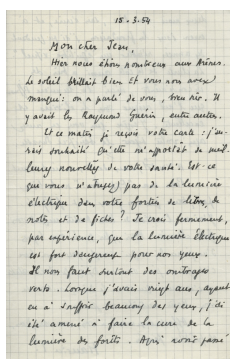 15.3.54
Mon cher Jean,
Hier nous étions nombreux aux Arènes.
Le soleil brillait bien et vous nous avez
manqué : on a parlé de vous, bien sûr. Il
y avait les Raymond Guérin, entre autres.
Et ce matin je reçois votre carte : j'au-
rais souhaité qu'elle m'apportât de meil-
leures nouvelles de votre santé. Est-ce
que vous n'abusez pas de la lumière
électrique dans votre fortin de livres, de
notes et de fiches ? Je crois fermement,
par expérience, que la lumière électrique
est fort dangereuse pour nos yeux.
Il nous faut surtout des ombrages
verts. Lorsque j'avais vingt ans, ayant
eu à souffrir beaucoup des yeux, j'ai
été amené à faire la cure de la
lumière des forêts. Après avoir passé